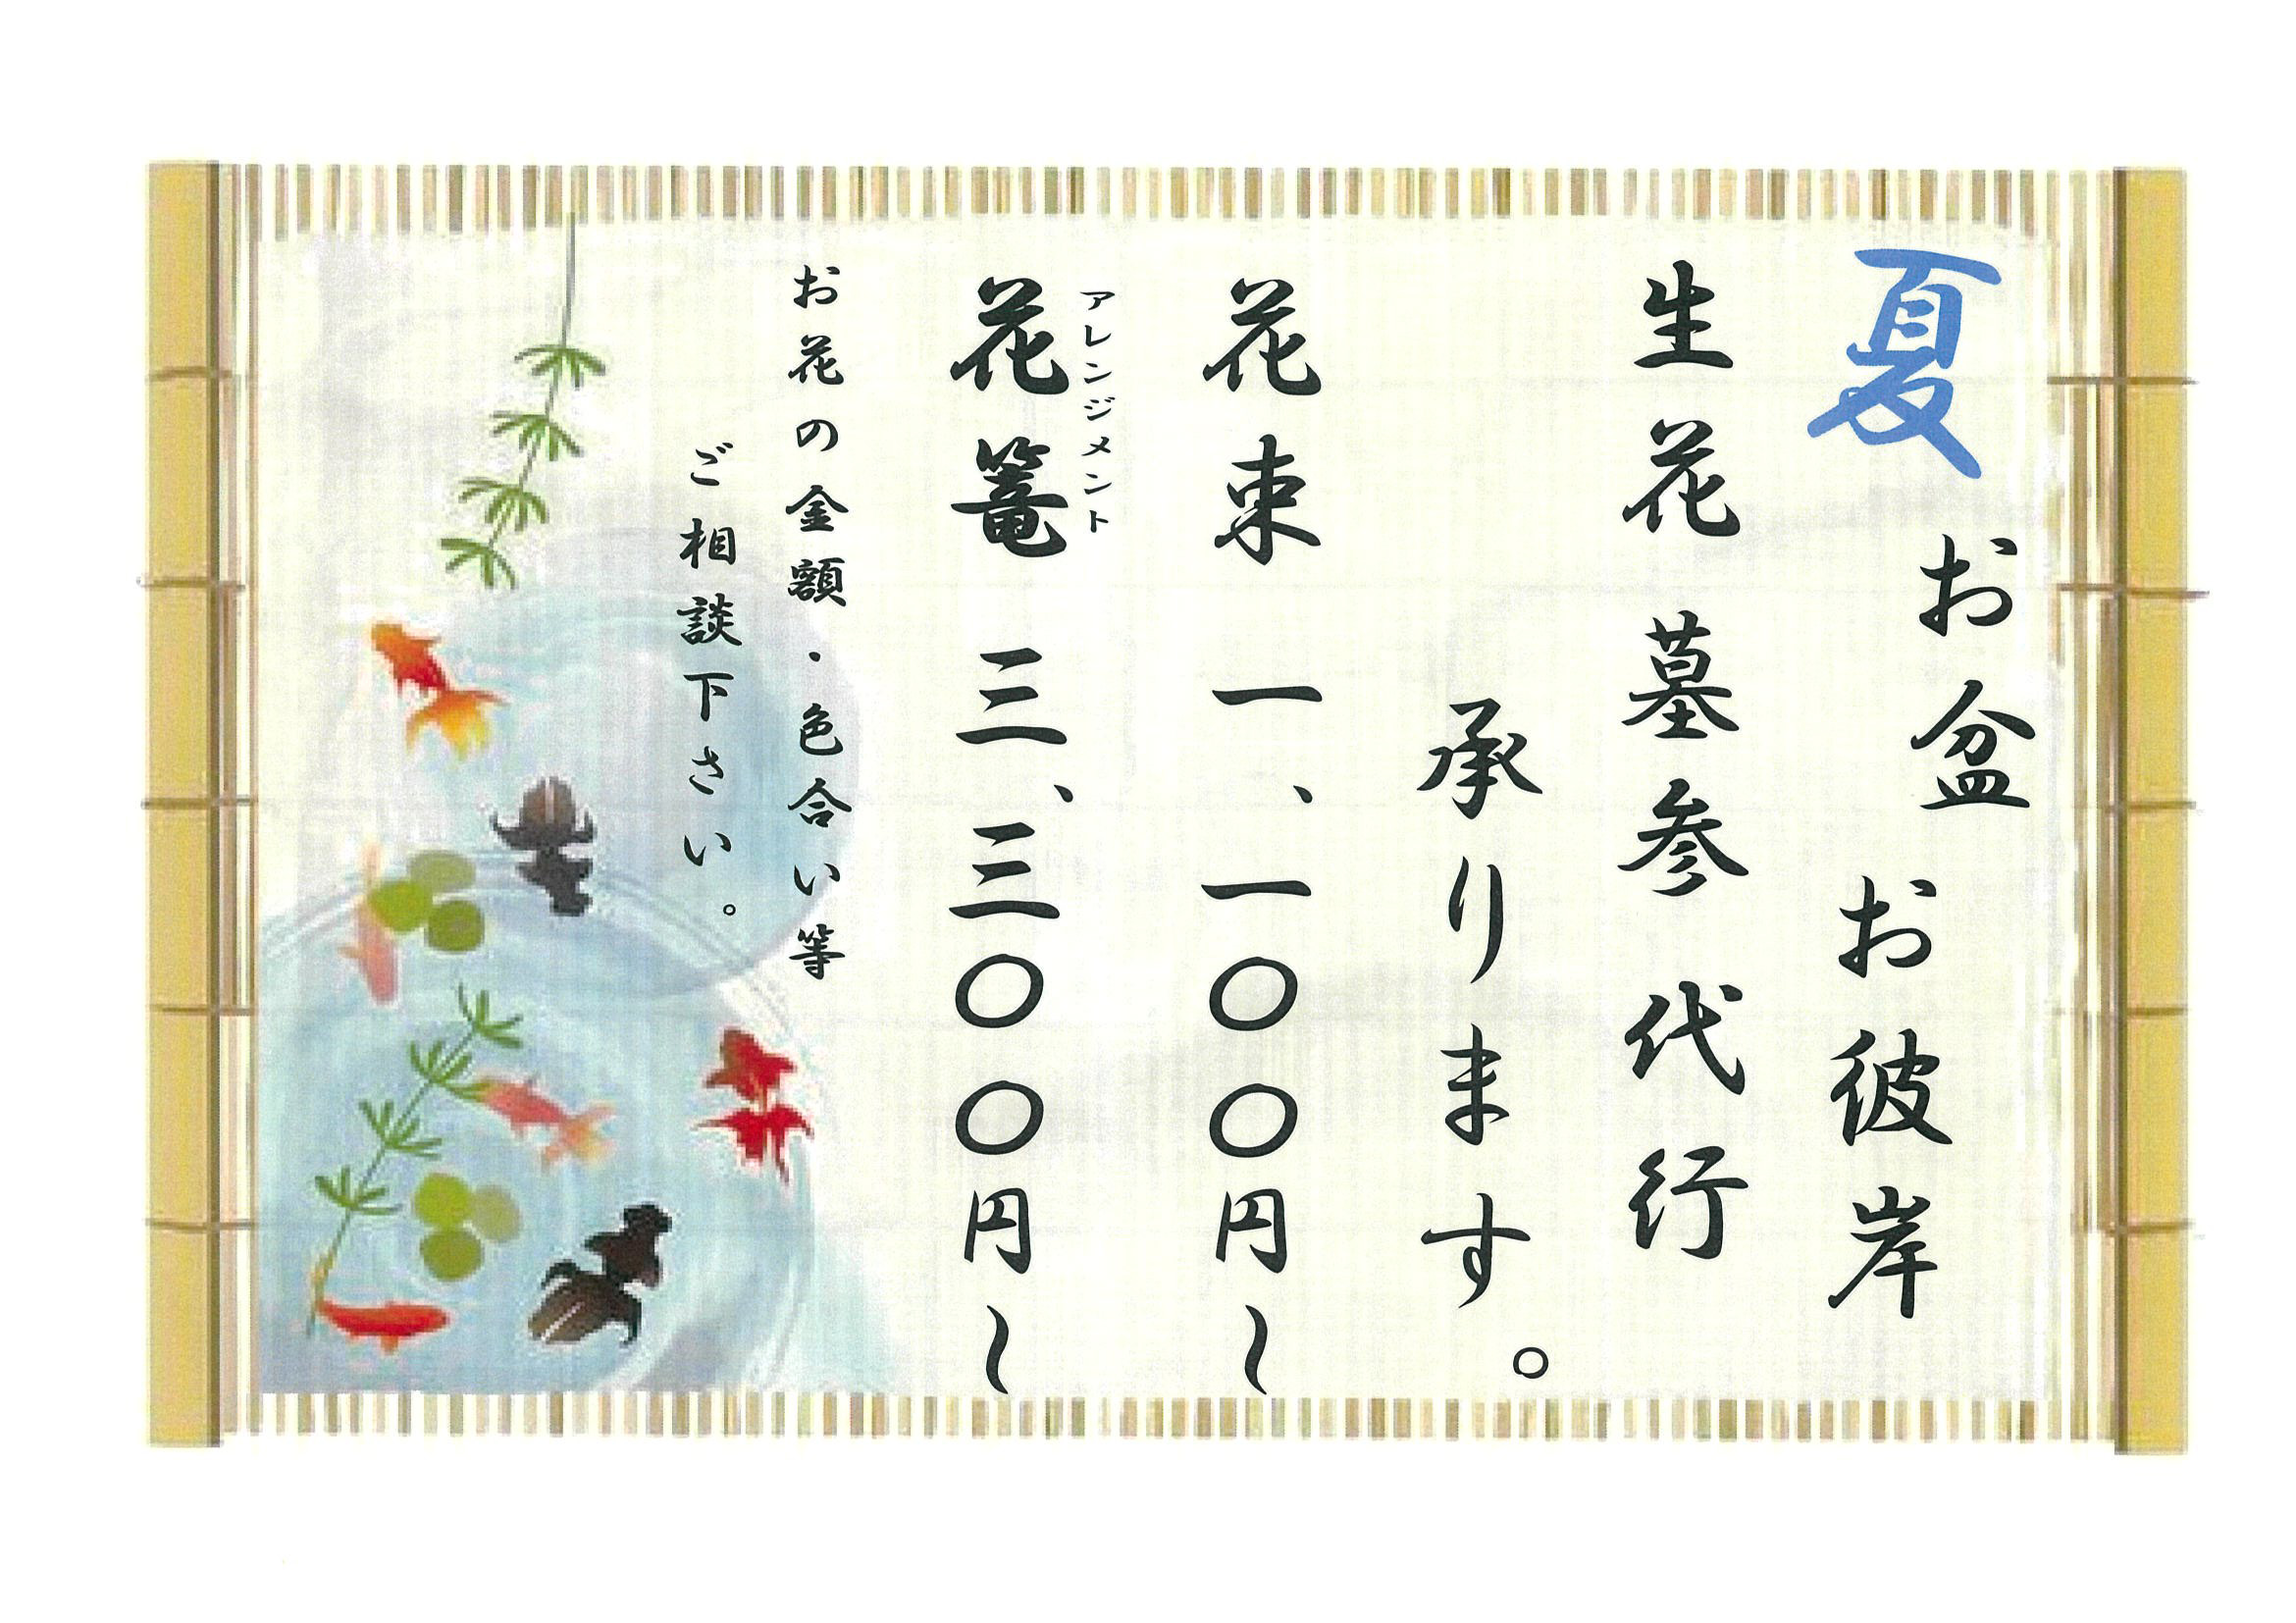 夏 お盆 お彼岸
生花 墓参 代行
承ります。
花束 一、一〇〇円~
アレンジメント
花篭 三、三〇〇円~
お花の金額・色合い等
ご相談下さい。